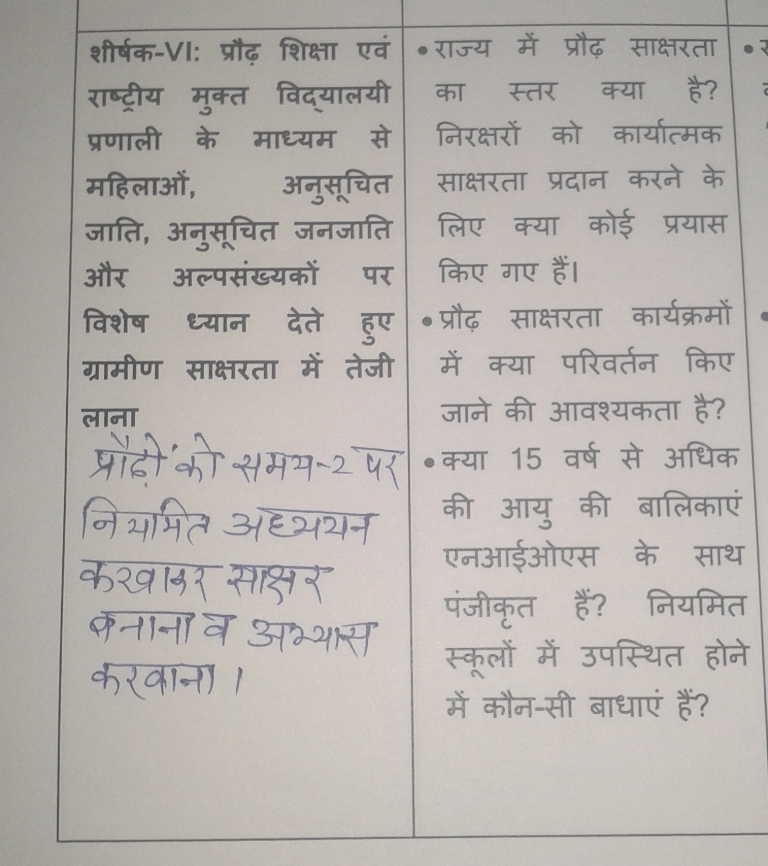 शीर्षक-VI: प्रौढ़ शिक्षा एवं
राष्ट्रीय मुक्त विद्यालयी
प्रणाली के माध्यम से
महिलाओं, अनुसूचित
जाति, अनुसूचित जनजाति
और अल्पसंख्यकों पर
विशेष ध्यान देते हुए
ग्रामीण साक्षरता में तेजी
लाना
प्रौढ़ों को समय-2 पर
नियमित अध्ययन
करवाकर साक्षर
बनाना व अभ्यास
करवाना।
• राज्य में प्रौढ़ साक्षरता
का स्तर क्या है?
निरक्षरों को कार्यात्मक
साक्षरता प्रदान करने के
लिए क्या कोई प्रयास
किए गए हैं।
• प्रौढ़ साक्षरता कार्यक्रमों
में क्या परिवर्तन किए
जाने की आवश्यकता है?
• क्या 15 वर्ष से अधिक
की आयु की बालिकाएं
एनआईओएस के साथ
पंजीकृत हैं? नियमित
स्कूलों में उपस्थित होने
में कौन-सी बाधाएं हैं?